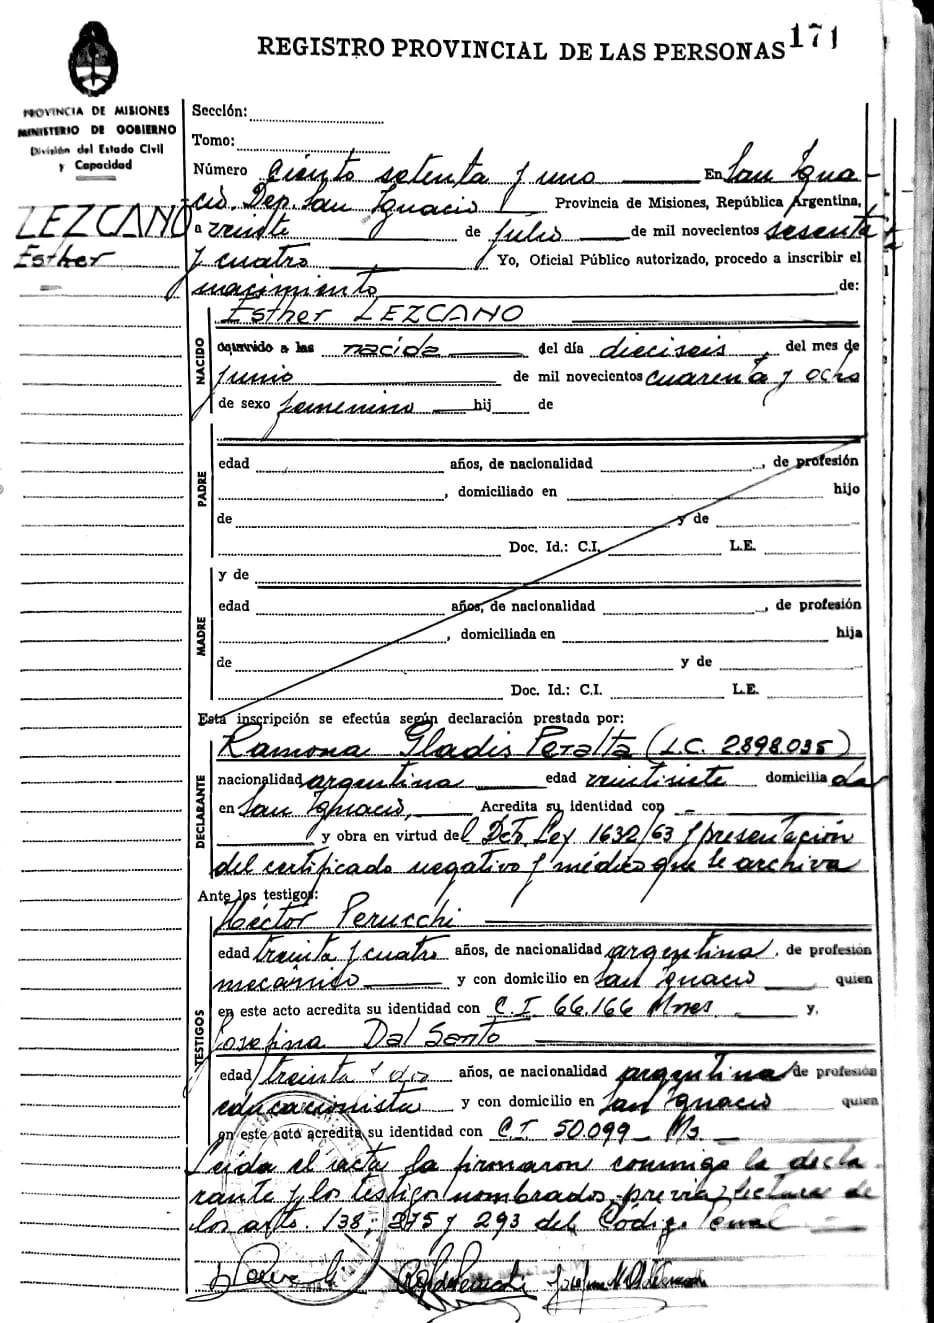 REGISTRO PROVINCIAL DE LAS PERSONAS 171
PROVINCIA DE MISIONES
MINISTERIO DE GOBIERNO
División del Estado Civil
y Capacidad
LEZCANO
Esther
Sección:
Tomo:
Número Ciento setenta y uno En San Igna-
cio, Dep. San Ignacio, Provincia de Misiones, República Argentina,
a veinte de julio de mil novecientos sesenta
y cuatro Yo, Oficial Público autorizado, procedo a inscribir el
nacimiento de:
Esther LEZCANO
NACIDO
ocurrido a las nacida del día dieciseis, del mes de
junio de mil novecientos cuarenta y ocho
de sexo femenino hij de
PADRE
edad años, de nacionalidad , de profesión
, domiciliado en hijo
de y de
Doc. Id.: C.I. L.E.
MADRE
y de
edad años, de nacionalidad , de profesión
, domiciliada en hija
de y de
Doc. Id.: C.I. L.E.
Esta inscripción se efectúa según declaración prestada por:
DECLARANTE
Ramona Gladis Peralta (L.C. 2898.035)
nacionalidad argentina edad veintisiete domicilia da
en San Ignacio, Acredita su identidad con
y obra en virtud del Dct. Ley 1632/63 y presentación
del certificado negativo y médico que se archiva
Ante los testigos:
TESTIGOS
Héctor Perucchi
edad treinta y cuatro años, de nacionalidad argentina, de profesión
mecánico y con domicilio en San Ignacio quien
en este acto acredita su identidad con C.I. 66.166 Mnes y,
Josefina Dal Santo
edad treinta y dos años, de nacionalidad argentina de profesión
educacionista y con domicilio en San Ignacio quien
en este acto acredita su identidad con C.I. 50.099 Ms
Leida el acta la firmaron conmigo la decla
rante y los testigos nombrados, previa lectura de
los arts. 138, 275 y 293 del Código Penal